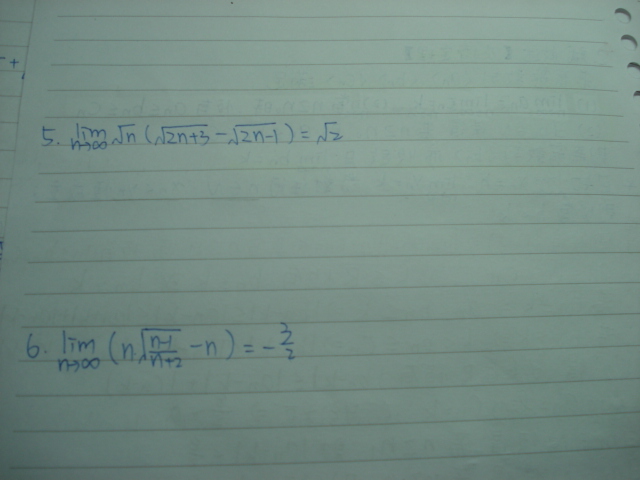 5. lim n→∞ √n (√2n+3 - √2n-1) = √2
6. lim n→∞ (n√n-1/n+2 - n) = -3/2